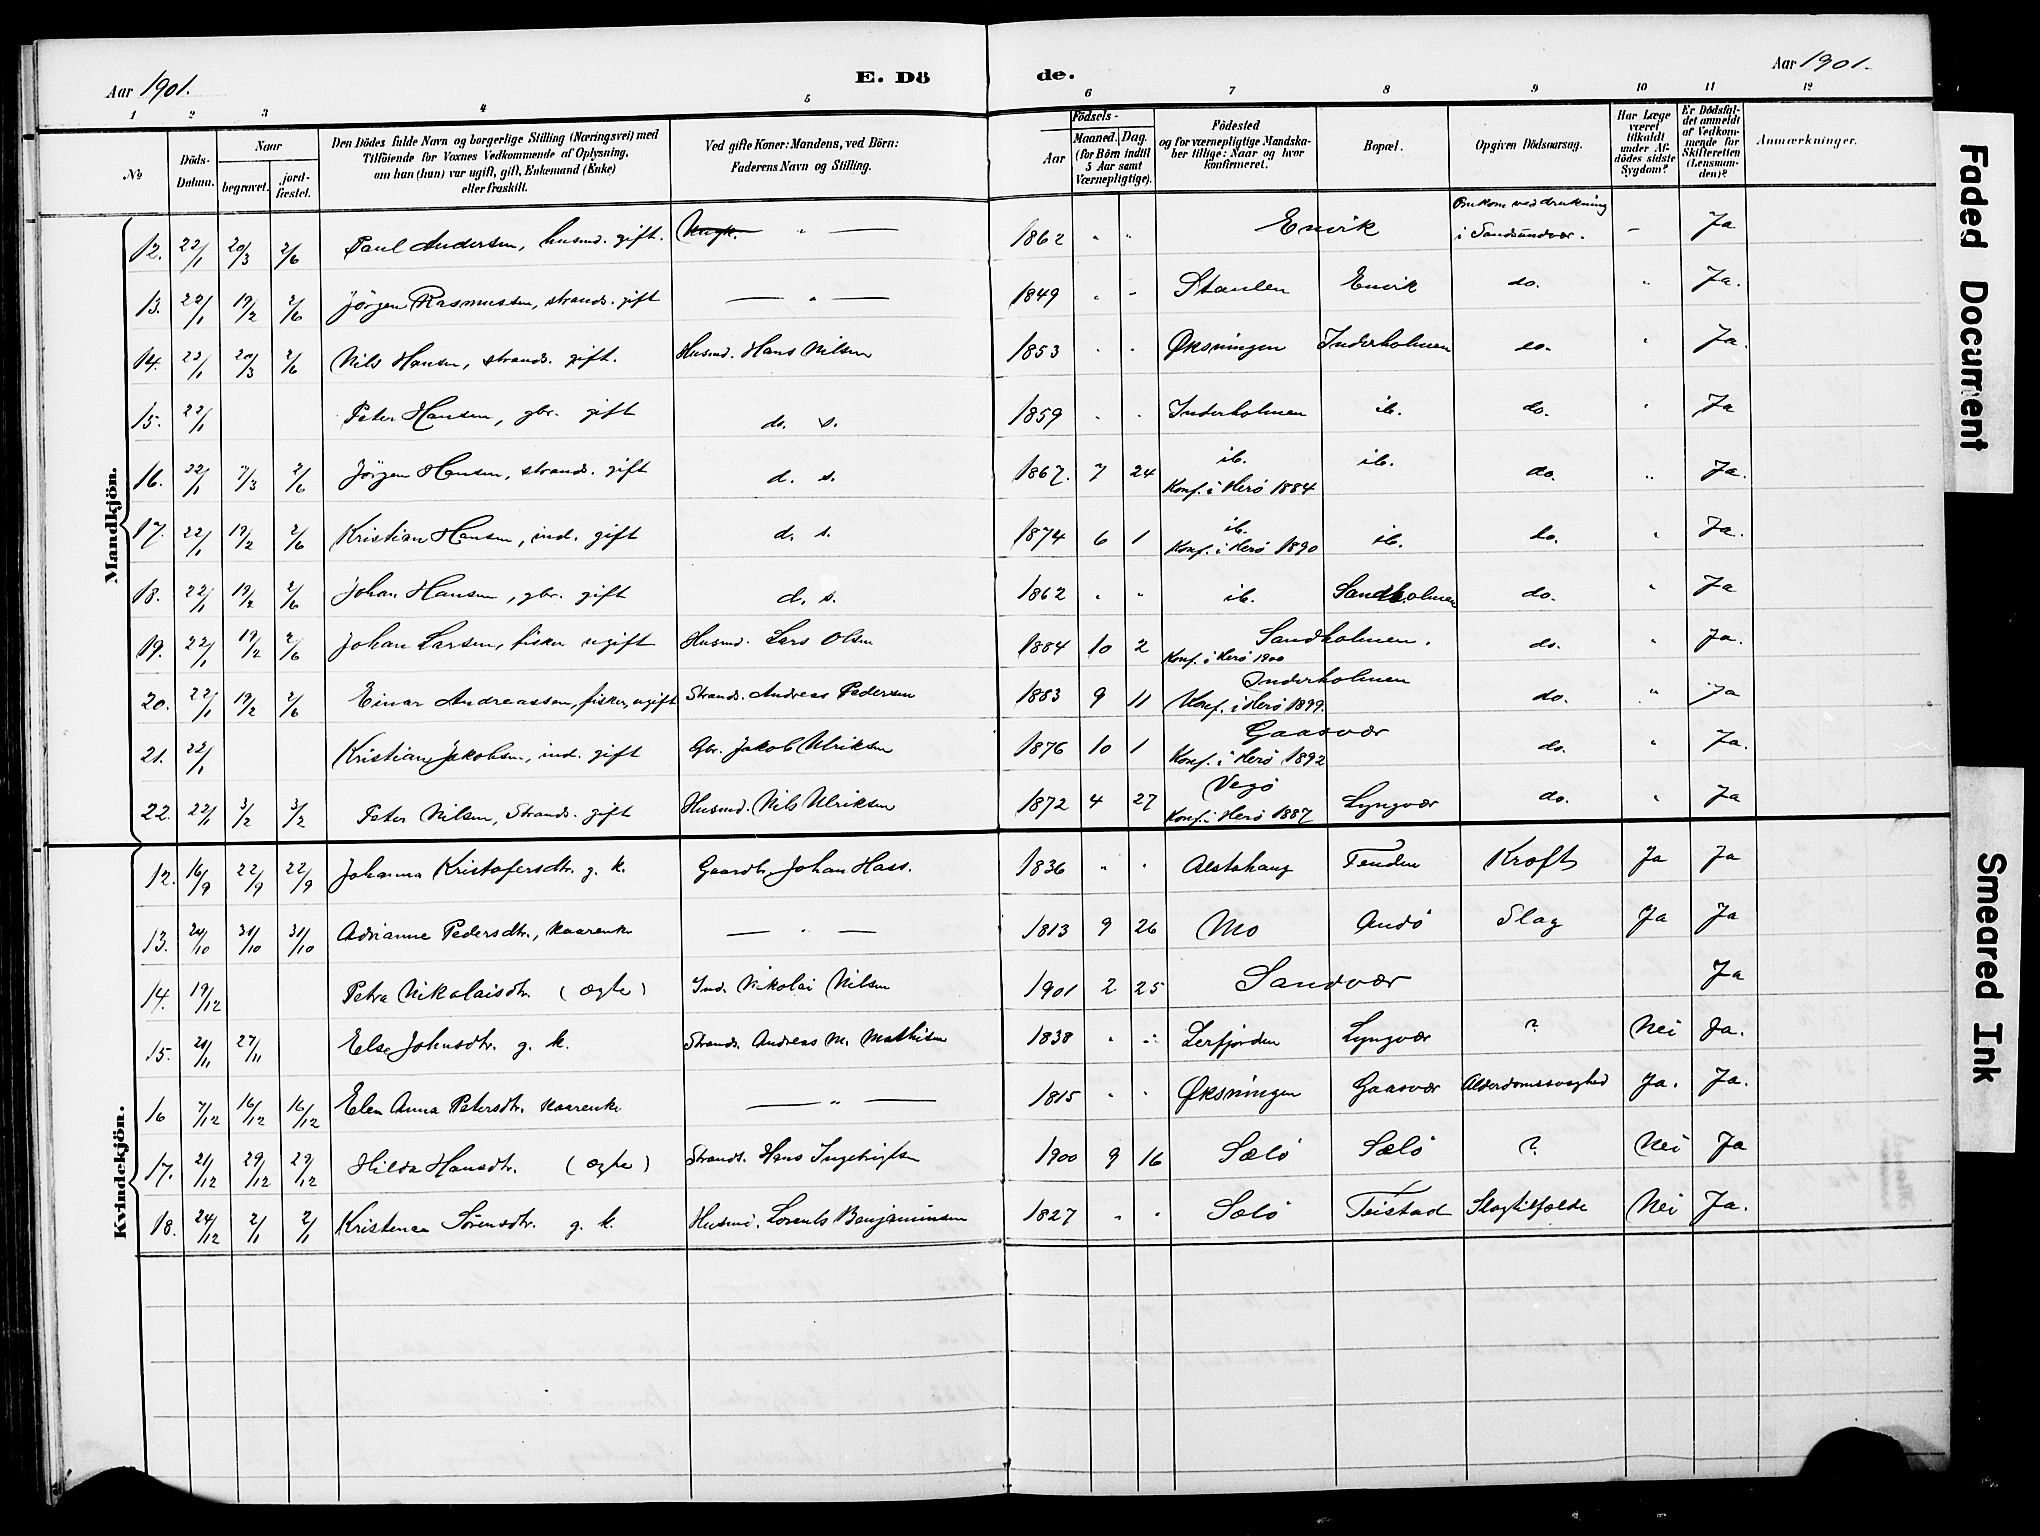 Aar 1901.
E. Dö
de.
Aar 1901.
1 2 3 4 5 6 7 8 9 10 11 12
No
Döds-Datum.
Naar
begravet.
jord-fæstet.
Den Dödes fulde Navn og borgerlige Stilling (Næringsvei) med
Tilföiende for Voxnes Vedkommende af Oplysning,
om han (hun) var ugift, gift, Enkemand (Enke)
eller fraskilt.
Ved gifte Koner: Mandens, ved Börn:
Faderens Navn og Stilling.
Födsels-
Aar
Maaned. Dag.
(for Börn indtil
5 Aar samt
Værnepligtige).
Födested
og for værnepligtige Mandska-
ber tillige: Naar og hvor
konfirmeret.
Bopæl.
Opgiven Dödsaarsag.
Har Læge
været
tilkaldt
under Af-
dödes sidste
Sygdom?
Er Dödsfal-
det anmeldt
af Vedkom-
mende for
Skifteretten
(Lensman-
den)?
Anmærkninger.
Mandkjön.
12. 22/1 20/3 2/6 Paul Andersen, husmd. gift. " — 1862 " " Envik Omkom ved drukning i Sandsundvær. – Ja
13. 22/1 19/2 2/6 Jörgen Rasmussen, strands. gift — " — 1849 " " Staulen Envik do. " Ja.
14. 22/1 20/3 2/6 Nils Hansen, strands. gift. Husmd. Hans Nilsen 1853 " " Øksningen Inderholmen do. " Ja.
15. 22/1 Peter Hansen, gbr. gift d. s. 1859 " " Inderholmen ib. do. " Ja
16. 22/1 7/3 2/6 Jörgen Hansen, strands. gift d. s. 1867. 7 24 ib. Konf. i Herö 1884 ib. do. " Ja.
17. 22/1 19/2 2/6 Kristian Hansen, ind. gift d. s. 1874 6 1 ib. Konf. i Herö 1890 ib. do. " Ja.
18. 22/1 19/2 2/6 Johan Hansen, gbr. gift d. s. 1862 " " ib. Sandholmen do. " Ja
19. 22/1 19/2 2/6 Johan Larsen, fisker ugift Husmd. Lars Olsen 1884 10 2 Sandholmen. Konf. i Herö 1900 do. " Ja.
20. 22/1 19/2 2/6 Einar Andreassen, fisker, ugift Strands. Andreas Pedersen 1883 9 11 Inderholmen Konf. i Herö 1899. do. " Ja
21. 22/1 Kristian Jakobsen, ind. gift Gbr. Jakob Ulriksen 1876 10 1 Gaasvær Konf. i Herö 1892 do. " Ja.
22. 22/1 3/2 3/2 Peter Nilsen, Strands. gift Husmd. Nils Ulriksen 1872 4 27 Vegö Konf. i Herö 1887 Lyngvær do. " Ja
Kvindekjön.
12. 16/9 22/9 22/9 Johanna Kristofersdtr. g. k. Gaardbr. Johan Hass. 1836 " " Alstahaug Tenden Kræft Ja Ja
13. 24/10 31/10 31/10 Adrianne Pedersdtr., kaarenke — " — 1813 9 26 Mo Andö Slag Ja Ja
14. 19/12 Petra Nikolaisdtr. (ægte) Ind. Nikolai Nilsen 1901 2 25 Sandvær Ja
15. 20/11 27/11 Else Johnsdtr. g. k. Strands. Andreas M. Mathisen 1838 " " Lerfjorden Lyngvær ? Nei Ja.
16 7/12 16/12 16/12 Elen Anna Petersdtr. kaarenke — " — 1815 " " Øksningen Gaasvær Alderdomssvaghed Ja. Ja.
17. 21/12 29/12 29/12 Hilda Hansdtr. (ægte) Strands. Hans Ingebrigtsen 1900 9 16 Sælö Sælö ? Nei Ja
18. 24/12 2/1 2/1 Kristence Sörensdtr. g. k. Husmd. Lorents Benjaminsen 1827 " " Sælö Teistad Slagtilfælde Nei Ja.
Faded Document
Smeared Ink